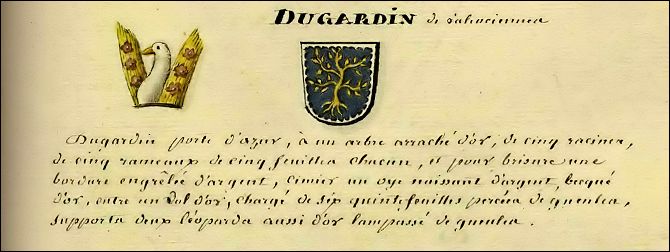 DUGARDIN de Valenciennes
Dugardin porte d'azur, à un arbre arraché d'or, de cinq racines,
de cinq rameaux de cinq feuilles chacun, et pour brisure une
bordure engrêlée d'argent, cimier un oye naissant d'argent, becqué
d'or, entre un vol d'or, chargé de six quintefeuilles percées de gueules,
supports deux léopards aussi d'or lampassé de gueules.